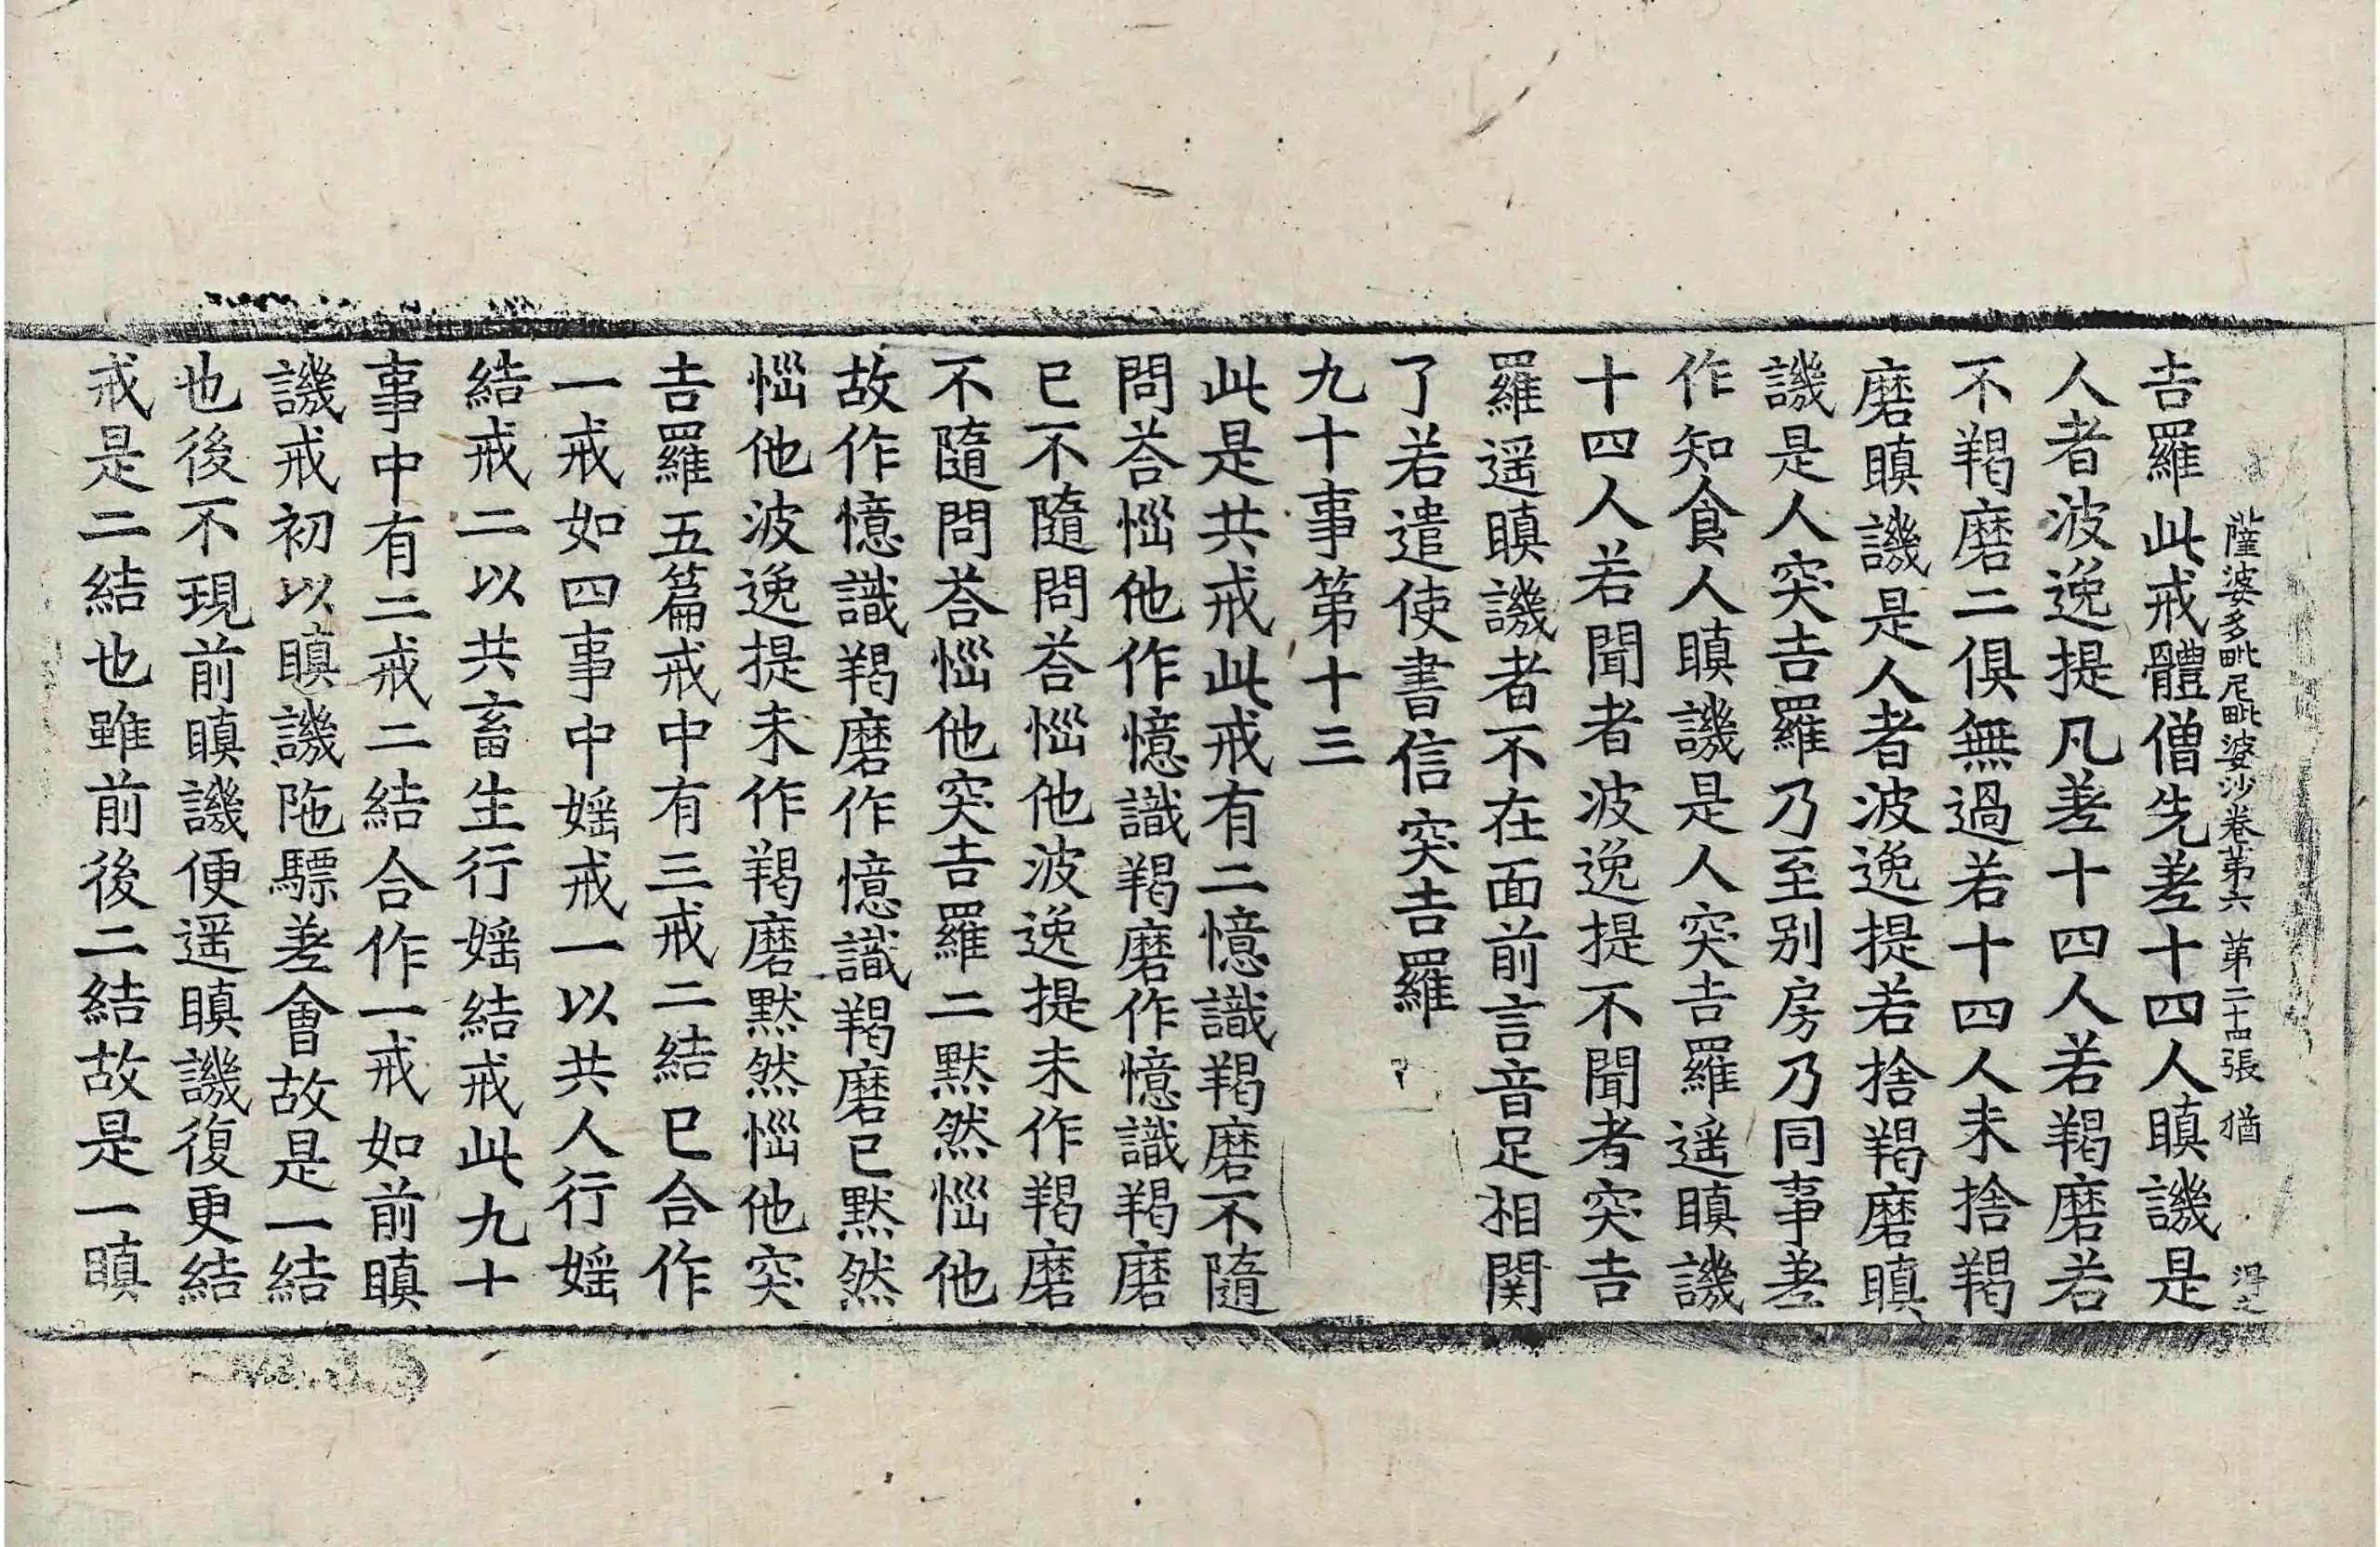 薩婆多毗尼毗婆沙卷第六 第二十四張 猶
吉羅此戒體僧先差十四人瞋譏是
人者波逸提凡差十四人若羯磨若
不羯磨二俱無過若十四人未捨羯
磨瞋譏是人者波逸提若捨羯磨瞋
譏是人突吉羅乃至别房乃同事差
作知食人瞋譏是人突吉羅遥瞋譏
十四人若聞者波逸提不聞者突吉
羅遥瞋譏者不在面前言音足相関
了若遣使書信突吉羅
九十事第十三
此是共戒此戒有二憶識羯磨不隨
問荅惱他作憶識羯磨作憶識羯磨
已不隨問荅惱他波逸提未作羯磨
不隨問荅惱他突吉羅二黙然惱他
故作憶識羯磨作憶識羯磨已黙然
惱他波逸提未作羯磨黙然惱他突
吉羅五篇戒中有三戒二結已合作
一戒如四事中婬戒一以共人行婬
結戒二以共畜生行婬結戒此九十
事中有二戒二結合作一戒如前瞋
譏戒初以瞋譏陁驃差會故是一結
也後不現前瞋譏便遥瞋譏復更結
戒是二結也雖前後二結故是一瞋